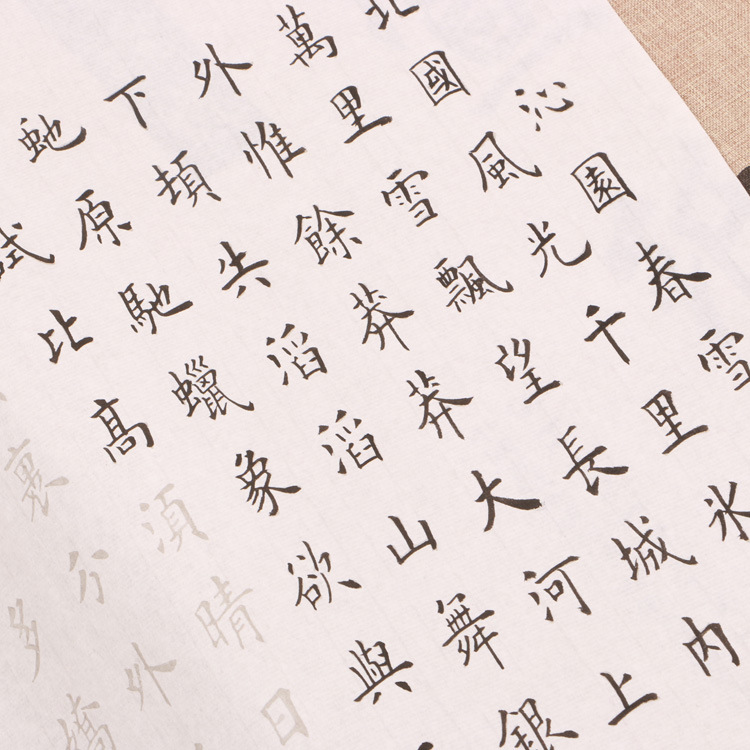 沁園春雪
北國風光千里氷
萬里雪飄望長城内
外惟餘莽莽大河上
下頓失滔滔山舞銀
虵原馳蠟象欲與
試比高須晴日
裹分外
多嬌